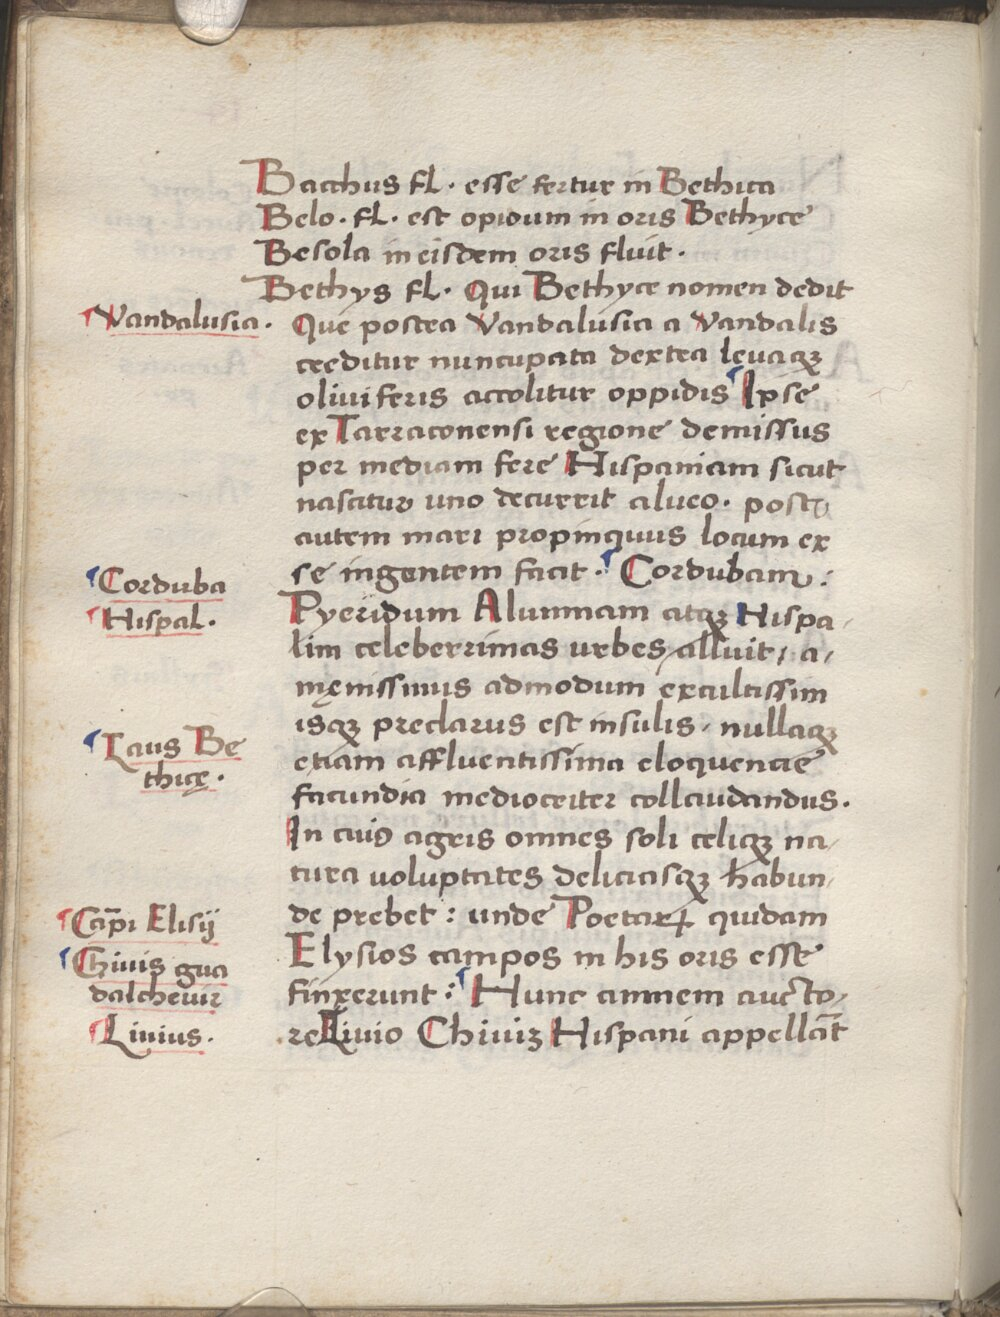 Bacchus fl. esse fertur in Bethica
Belo. fl. est opidum in oris Bethyce
Besola in eisdem oris fluit.
Bethys fl. Qui Bethyce nomen dedit
Vandalusia.
Que postea Vandalusia a Vandalis
creditur nuncupata dextra levaqꝫ
oliuiferis accolitur oppidis Ipse
ex Tarraconensi regione demissus
per mediam fere Hispaniam sicut
nascitur uno decurrit alueo. postꝙ
autem mari propinquus locum ex
se ingentem facit. Cordubam:
Corduba
Pyeridum Alumnam atqꝫ Hispa-
Hispal.
lim celeberrimas urbes alluit, a-
męnissimus admodum excultissim
isqꝫ preclarus est insulis. nullaqꝫ
Laus Be
thicę.
etiam affluentissima eloquencie
facundia mediocriter collaudandus.
In cuiꝰ agris omnes soli celiqꝫ na-
tura uoluptates deliciasqꝫ habun-
de prebet: unde Poetarꝝ quidam
Cāpi Elisij
Elysios campos in his oris esse
Chiuis gua
dalcheuir
finxerunt: Hunc amnem aucto-
Liuius.
re Liuio Chiuiꝫ Hispani appellāt